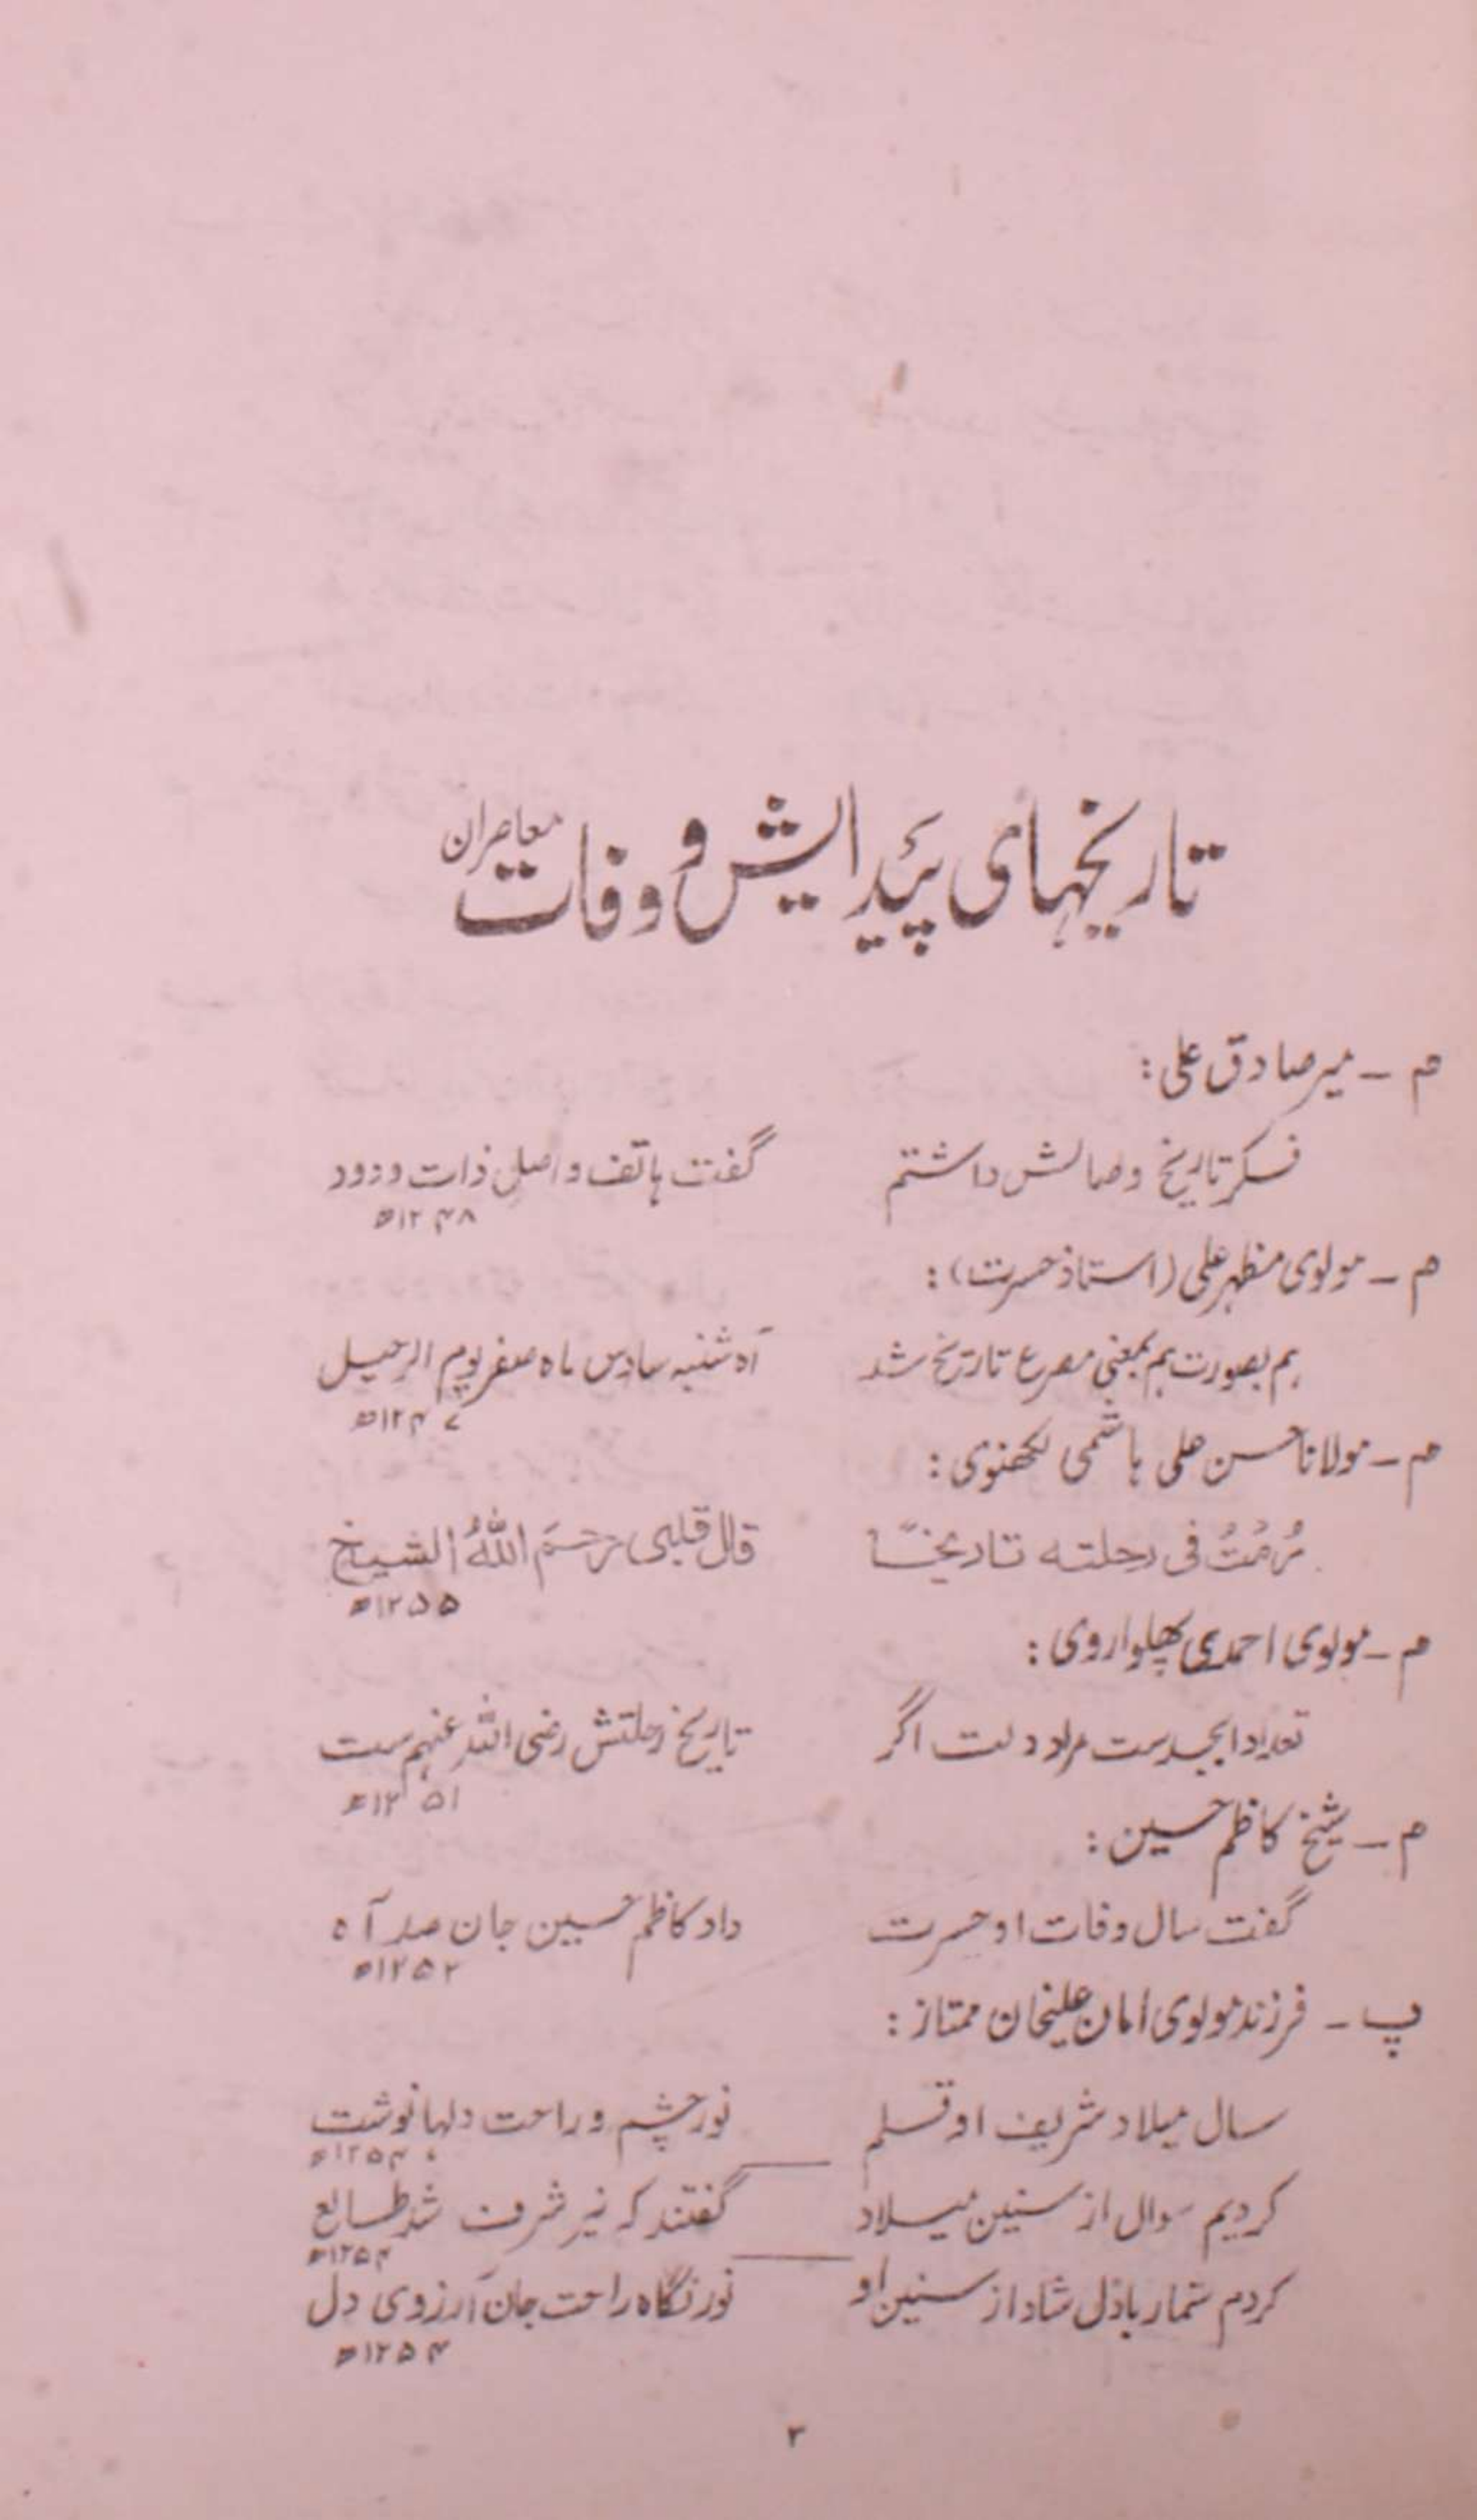 تاریخہای پئدایش و وفات معاصران
م ـ میر صادق علی :
فکر تاریخ وصالش داشتم گفت ہاتف واصل ذات ودود
۱۲۴۸ھ
م ـ مولوی مظہر علی (استاذ حسرت) :
ہم بصورت ہم بمعنی مصرع تاریخ شد آہ شنبہ سادس ماہ صفر یوم الرحیل
۱۲۴۷ھ
م ـ مولانا حسن علی ہاشمی لکھنوی :
رُمْتُ فی رحلته تاریخًا قال قلبی رحمَ اللّٰهُ الشیخ
۱۲۵۵ھ
م ـ مولوی احمدی پھلواروی :
تعداد ابجدست مراد دلت اگر تاریخ رحلتش رضی اللہ عنہم ست
۱۲۵۱ھ
م ـ شیخ کاظم حسین :
گفت سال وفات او حسرت داد کاظم حسین جان صد آہ
۱۲۵۲ھ
پ ـ فرزند مولوی امان علیخان ممتاز :
سال میلاد شریف او قلم نور چشم و راحت دلہا نوشت
۱۲۵۴ھ
کردیم سوال از سنین میلاد گفتند کہ نیر شرف شد طالع
۱۲۵۴ھ
کردم شمار بادل شاد از سنین او نور نگاہ راحت جان آرزوی دل
۱۲۵۴ھ
۳